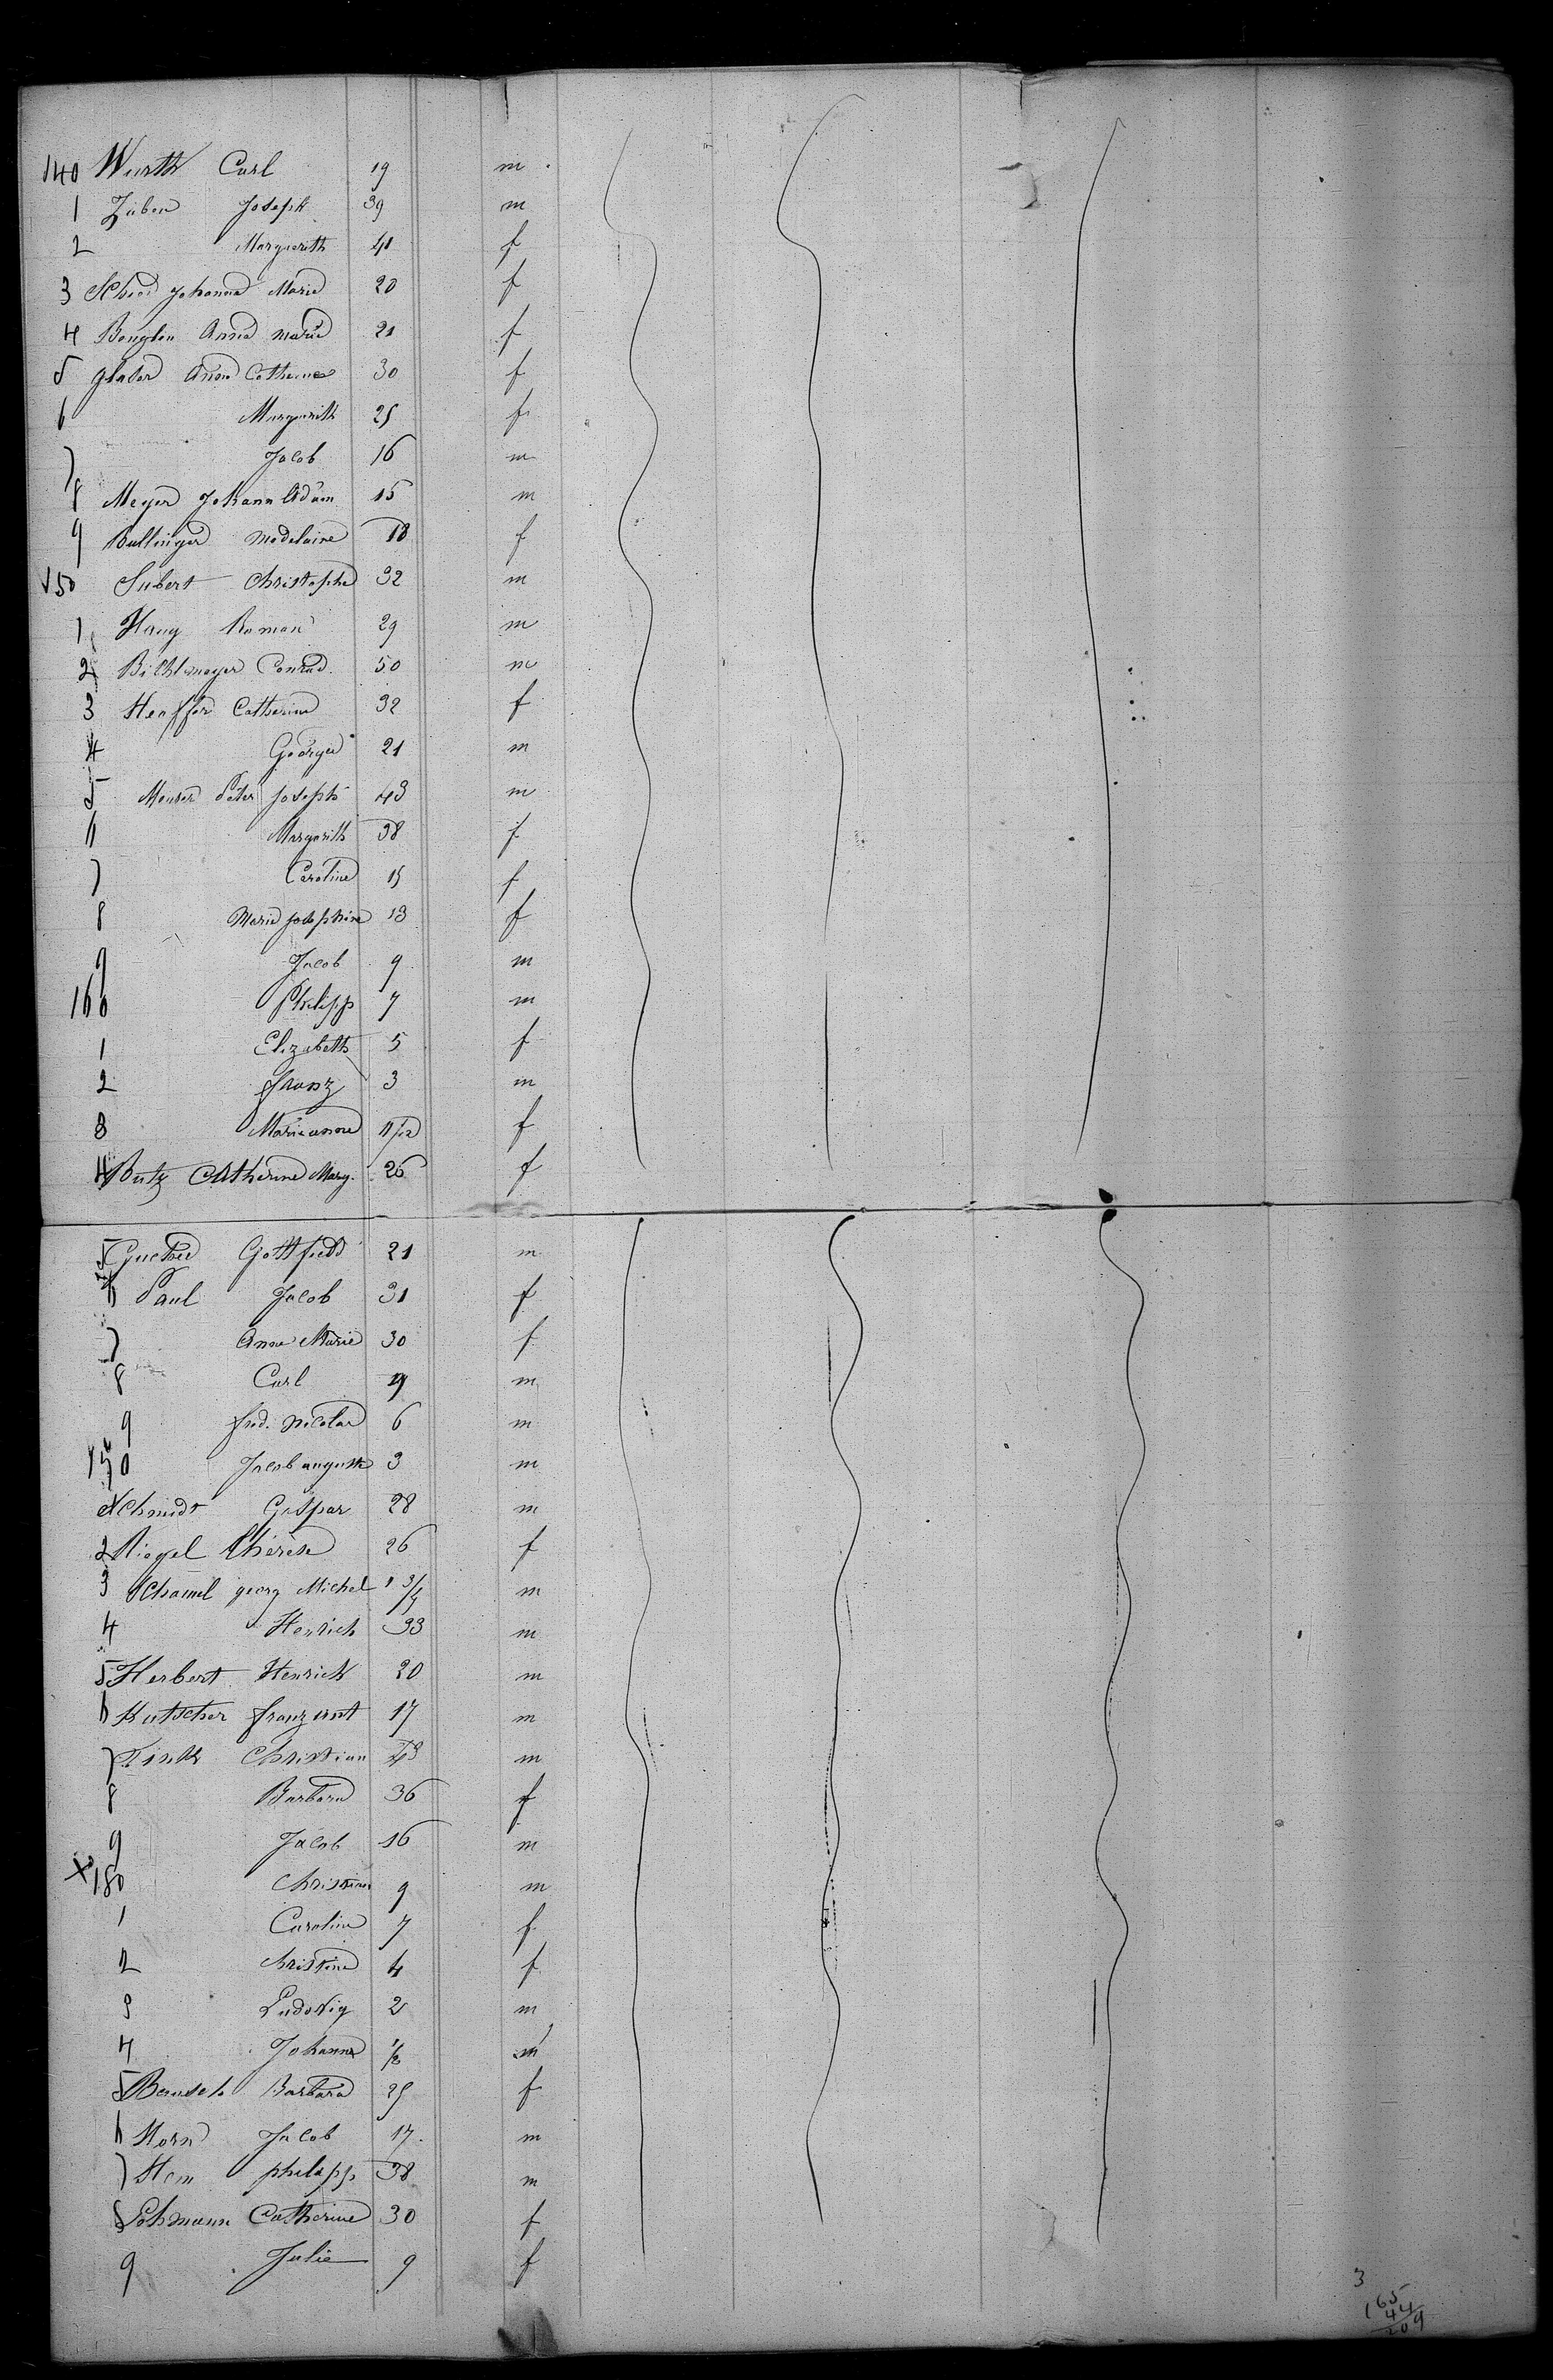 140 Wurth Carl 19 m
1 Züben Joseph 39 m
2 Marguerith 41 f
3 Johanna Marie 20 f
4 Anna Marie 21 f
5 Glaser Anna Catherine 30 f
6 Marguerith 25 f
7 Jacob 16 m
8 Meyer Johann Adam 15 m
9 Bullinger Madelaine 18 f
150 Subert Christophe 32 m
1 Haug Roman 29 m
2 Bichlmayer Conrad 50 m
3 Catherine 32 f
4 George 21 m
5 Meurer Peter Joseph 43 m
6 Margarith 38 f
7 Caroline 15 f
8 Marie Josephine 13 f
9 Jacob 9 m
160 Philipp 7 m
1 Elizabeth 5 f
2 Franz 3 m
3 Marieanne 11/12 f
4 Butz Catherine Marg. 26 f
5 Gottfried 21 m
6 Paul Jacob 31 f
7 Anna Marie 30 f
8 Carl 9 m
9 Fred. Nicolas 6 m
170 Jacob auguste 3 m
Schmidt Gaspar 28 m
2 Riegel Thérèse 26 f
3 Schamel georg Michel 3/4 m
4 Henrich 33 m
5 Herbert Henrich 20 m
6 Kutscher franz ant 17 m
7 Fink Christian 43 m
8 Barbara 36 f
9 Jacob 16 m
x 180 Christian 9 m
1 Caroline 7 f
2 Christine 4 f
3 Ludwig 2 m
4 Johannes 1/2 m
5 Bausch Barbara 25 f
6 Horn Jacob 17 m
7 Hem philapp 38 m
8 Lehmann Catherine 30 f
9 Julie 9 f
3
165
44
209